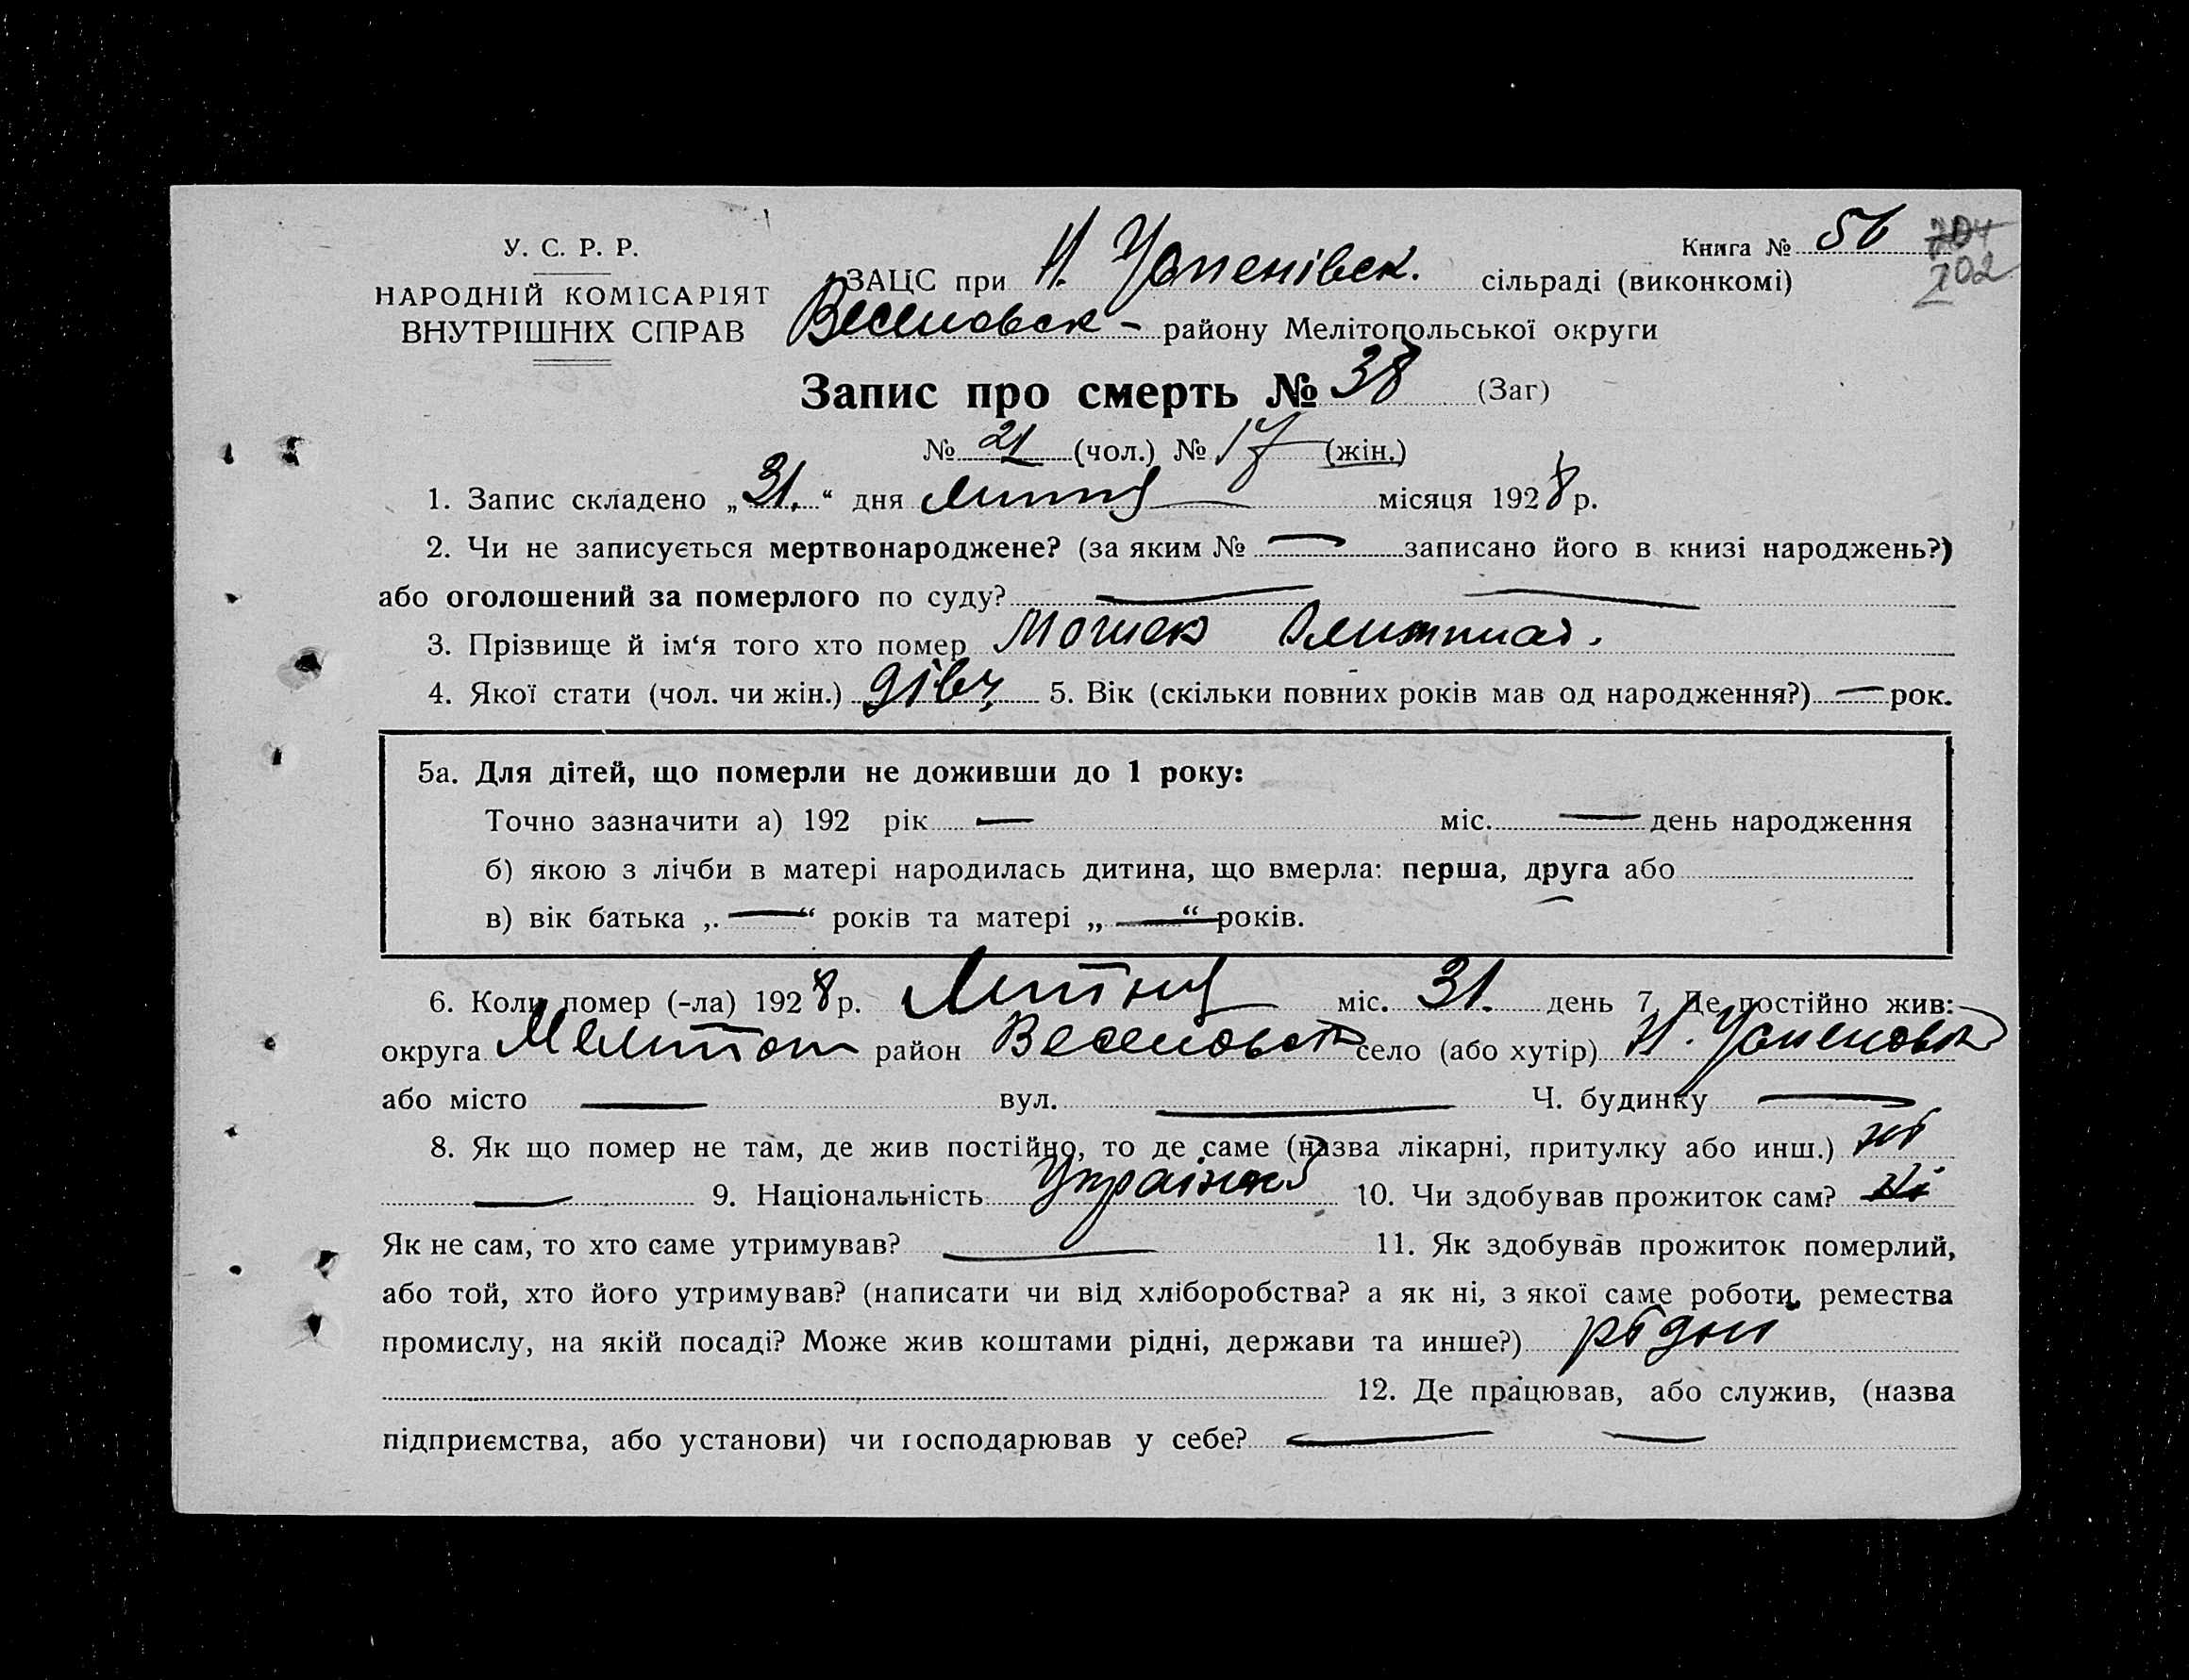 У. С. Р. Р.
НАРОДНІЙ КОМІСАРІЯТ
ВНУТРІШНІХ СПРАВ
Книга № 56 204
202
ЗАЦС при Н. Успенівск. сільраді (виконкомі)
Веселовск - району Мелітопольської округи
Запис про смерть № 38 (Заг)
№ 21 (чол.) № 17 (жін.)
1. Запис складено „31.“ дня липня місяця 1928 р.
2. Чи не записується мертвонароджене? (за яким № — записано його в книзі народжень?)
або оголошений за померлого по суду? — —
3. Прізвище й ім‘я того хто помер
4. Якої стати (чол. чи жін.) дівч. 5. Вік (скільки повних років мав од народження?) — рок.
5а. Для дітей, що померли не доживши до 1 року:
Точно зазначити а) 192 рік — міс. — день народження
б) якою з лічби в матері народилась дитина, що вмерла: перша, друга або
в) вік батька „ — “ років та матері „ — “ років.
6. Коли помер (-ла) 1928 р. Липня міс. 31. день 7. Де постійно жив:
округа Мелітоп район Веселовськ село (або хутір) Н. Успеновка
або місто — вул. — Ч. будинку —
8. Як що помер не там, де жив постійно, то де саме (назва лікарні, притулку або инш.) ні
— 9. Національність Українка 10. Чи здобував прожиток сам? ні
Як не сам, то хто саме утримував? — 11. Як здобував прожиток померлий,
або той, хто його утримував? (написати чи від хліборобства? а як ні, з якої саме роботи, ремества
промислу, на якій посаді? Може жив коштами рідні, держави та инше?) рідні
12. Де працював, або служив, (назва
підприємства, або установи) чи господарював у себе? — —